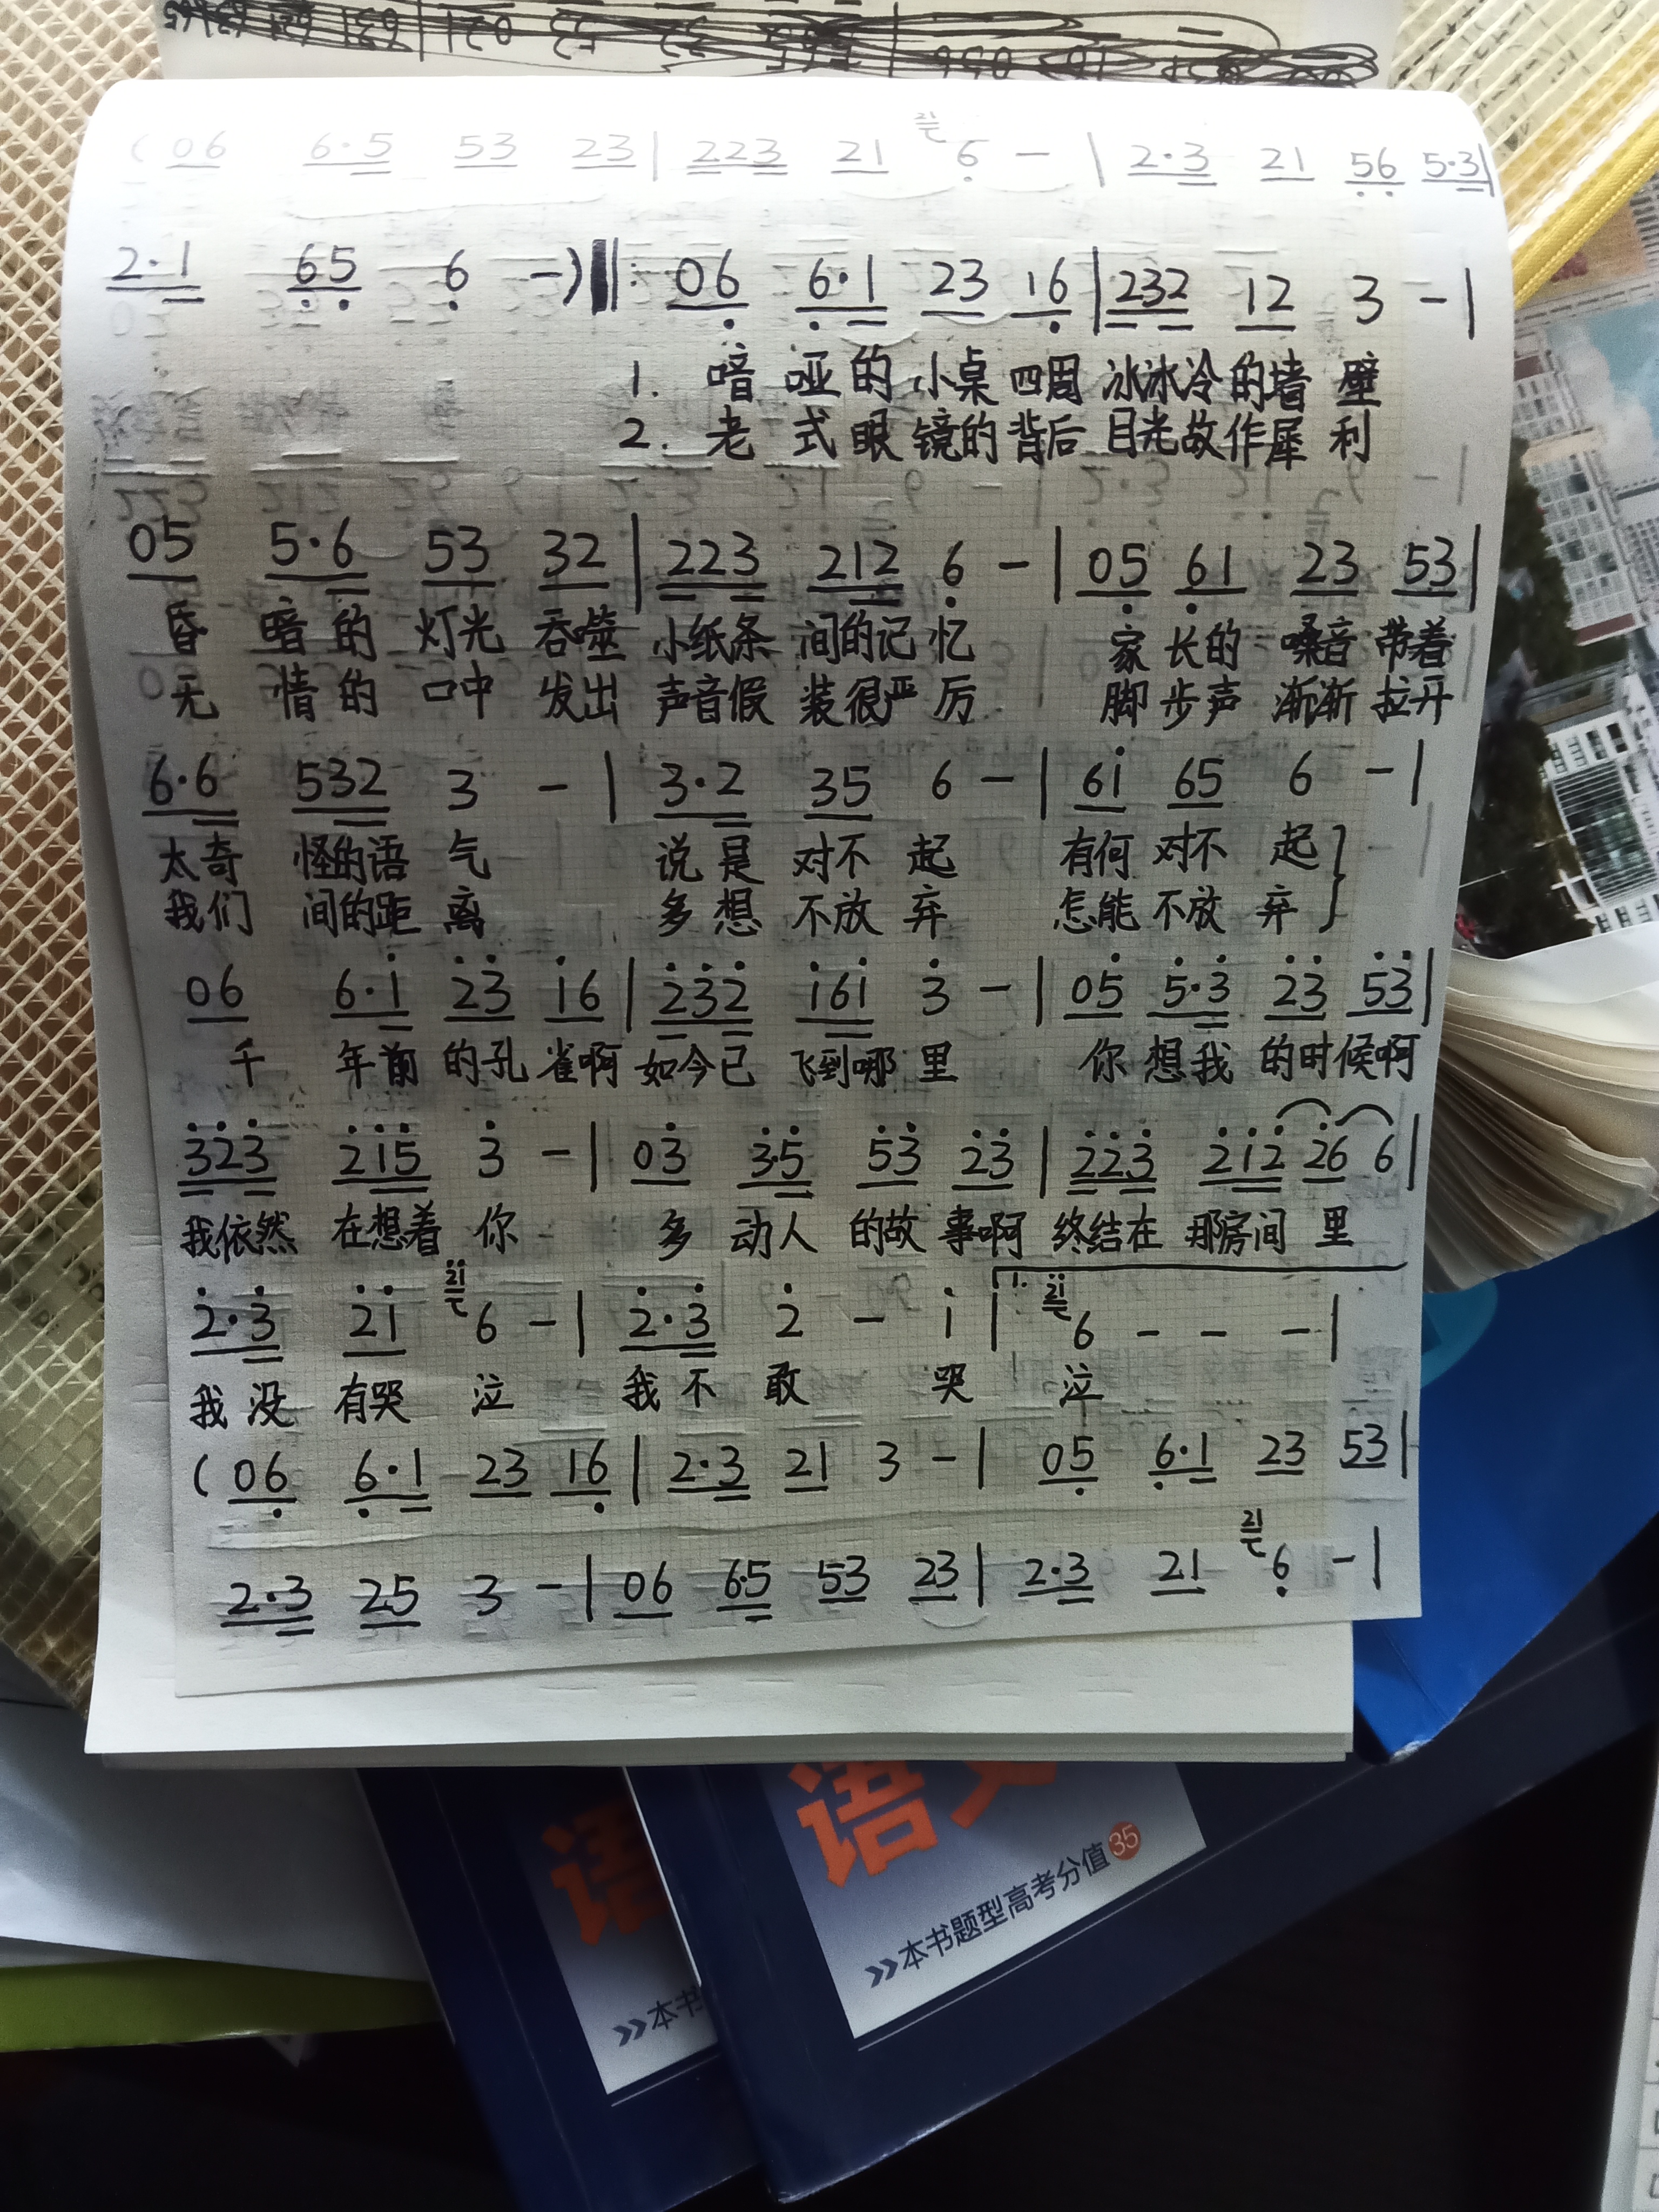 ( 06 6·5 53 23 | 223 21 21 6 - | 2·3 21 56 5·3 |
2·1 65 6 - ) ‖: 06 6·1 23 16 | 232 12 3 - |
1. 喑 哑的 小桌 四周 冰冰冷的墙 壁
2. 老 式眼 镜的 背后 目光故作犀 利
05 5·6 53 32 | 223 212 6 - | 05 61 23 53 |
昏 暗的 灯光 吞噬 小纸条 间的记 忆 家 长的 嗓音 带着
无 情的 口中 发出 声音假 装很严 厉 脚 步声 渐渐 拉开
6·6 532 3 - | 3·2 35 6 - | 6i 65 6 - |
太奇 怪的语 气 说是 对不 起 有何 对不 起 }
我们 间的距 离 多想 不放 弃 怎能 不放 弃
06 6·i 23 i6 | 232 i6i 3 - | 05 5·3 23 53 |
千 年前 的孔 雀啊 如今已 飞到哪 里 你 想我 的时 候啊
323 2i5 3 - | 03 3·5 53 23 | 223 2i2 26 6 |
我依然 在想着 你 多 动人 的故 事啊 终结在 那房间 里
2·3 2i 2i 6 - | 2·3 2 - i | 1. 2i 6 - - - |
我没 有哭 泣 我不 敢 哭 泣
( 06 6·1 23 16 | 2·3 21 3 - | 05 6·1 23 53 |
2·3 25 3 - | 06 6·5 53 23 | 2·3 21 21 6 - |
语
语
»本书题型高考分值 35
»本书